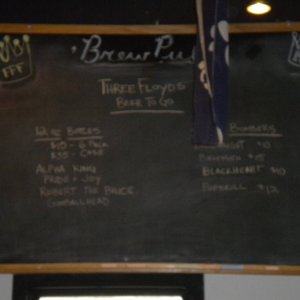 Brew Pu
FFF
Three Floyds
Beer To Go
12 oz Bottles
$10 - 6 Pack
$35 - Case
Alpha King
Pride + Joy
Robert the Bruce
Gumballhead
Bombers
Blackheart $10
$12